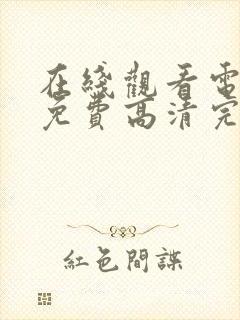 在綫觀看電
免費高清完
紅色間諜